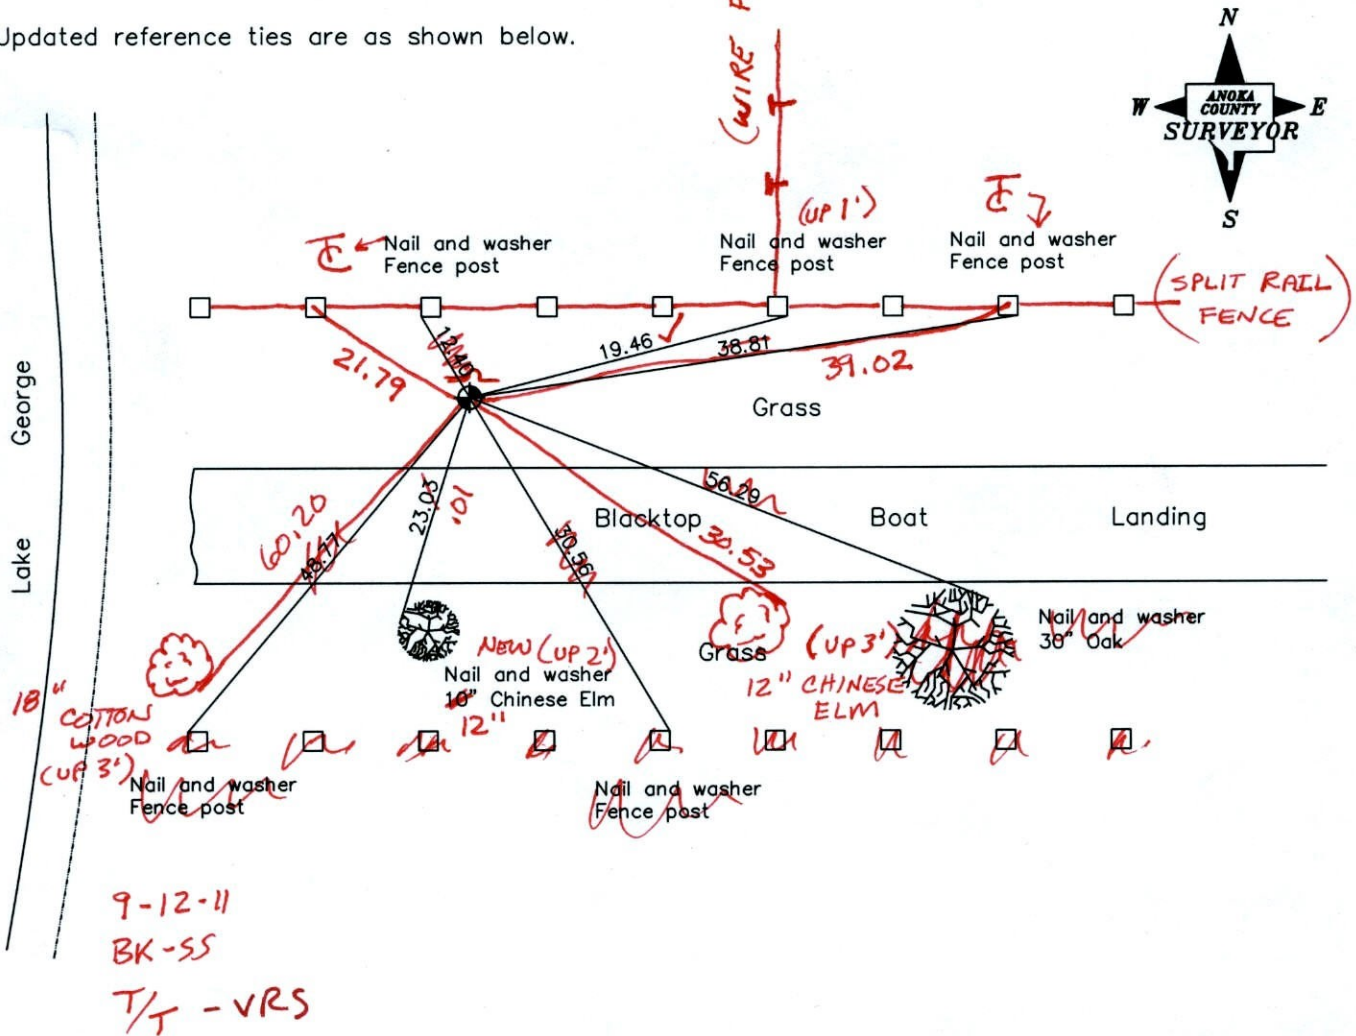 Updated reference ties are as shown below.
(WIRE
N
W
ANOKA
COUNTY
SURVEYOR
E
S
(UP 1')
Nail and washer
Fence post
Nail and washer
Fence post
Nail and washer
Fence post
(SPLIT RAIL
FENCE)
12.40
19.46
38.81
21.79
39.02
Grass
Lake George
56.29
23.03
.01
60.20
48.77
30.56
Blacktop Boat Landing
30.53
NEW (UP 2')
Nail and washer
10" Chinese Elm
12"
Grass
(UP 3')
12" CHINESE
ELM
Nail and washer
30" Oak
18"
COTTON
WOOD
(UP 3')
Nail and washer
Fence post
Nail and washer
Fence post
9-12-11
BK-SS
T/T - VRS